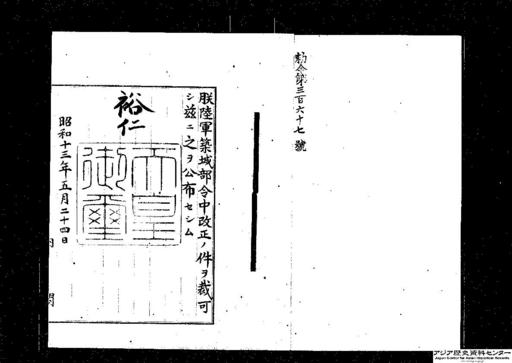 勅令第三百六十七號
朕陸軍築城部令中改正ノ件ヲ裁可
シ茲ニ之ヲ公布セシム
裕仁
天皇
御璽
昭和十三年五月二十四日
内閣
アジア歴史資料センター
Japan Center for Asian Historical Records